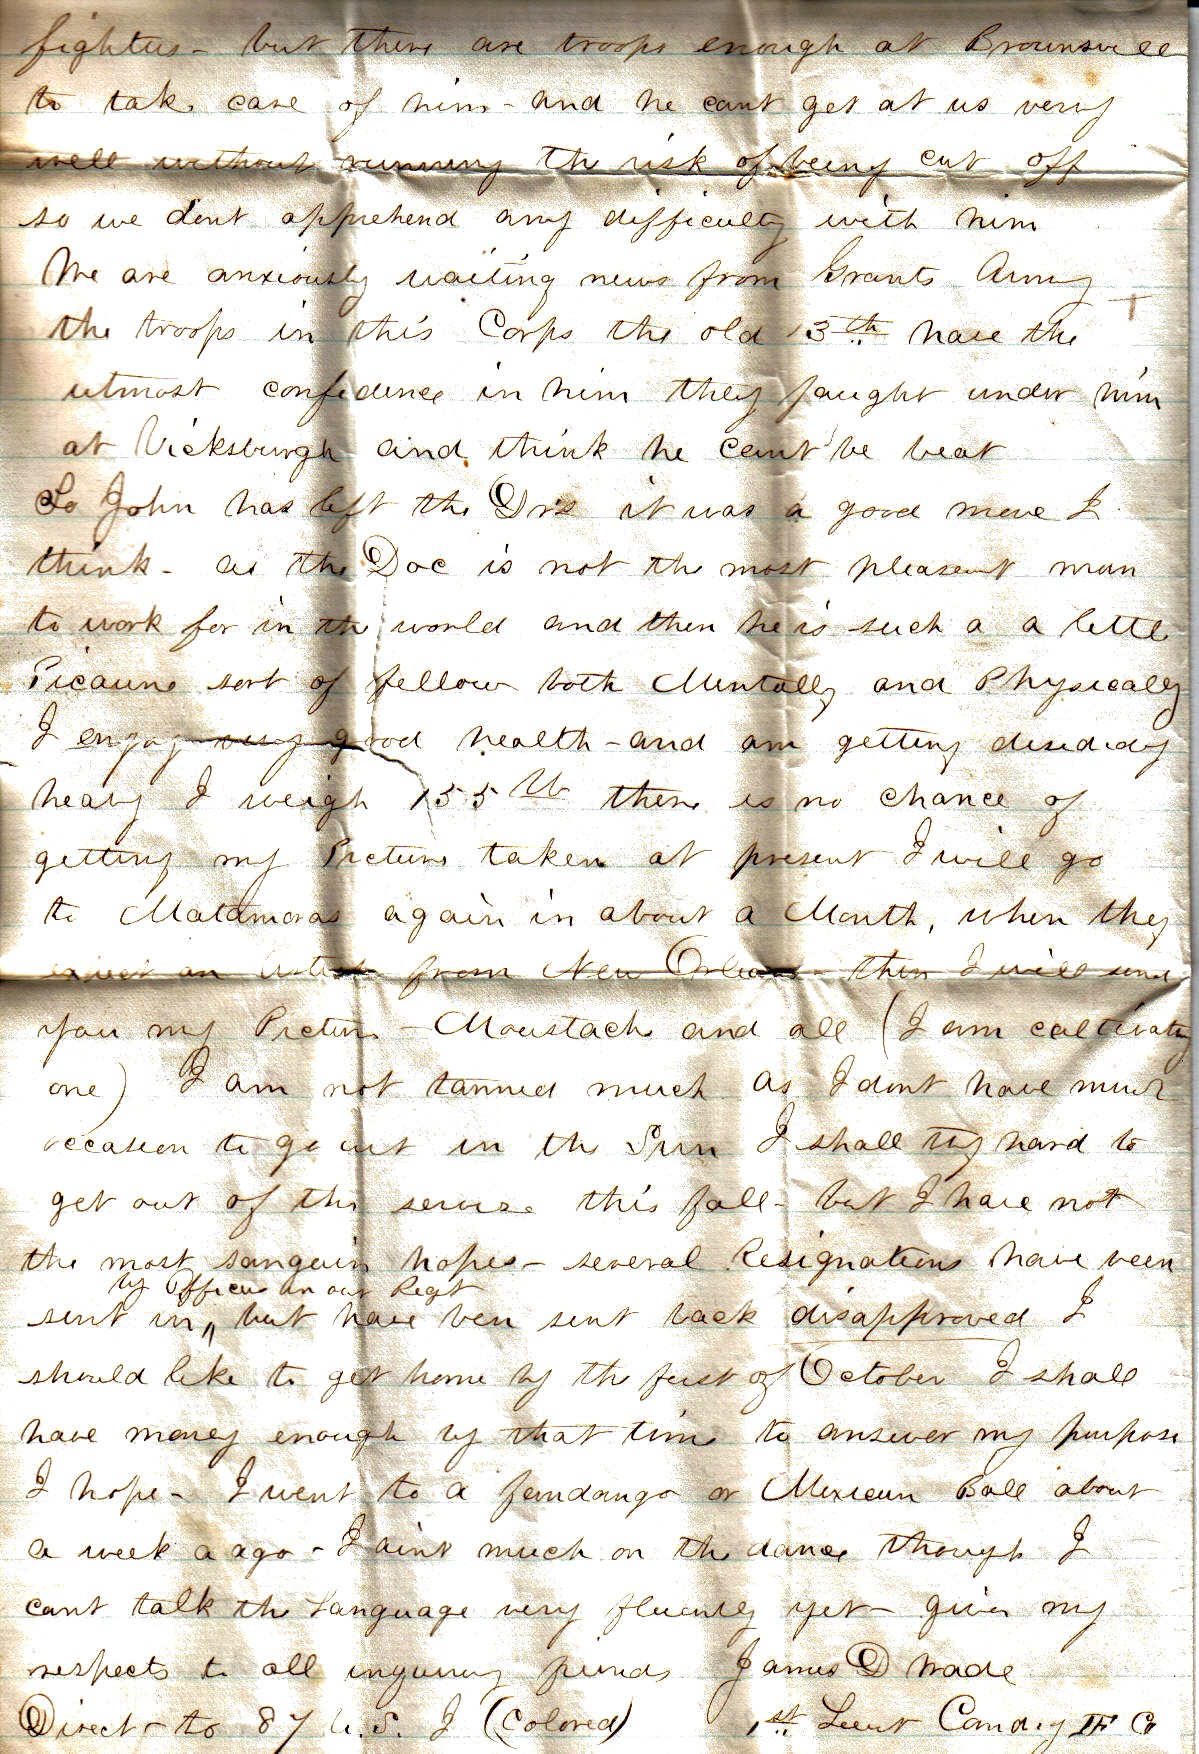 fighters - but there are troops enough at Brownsvill
to take care of him - and he cant get at us very
well without running the risk of being cut off
so we dont apprehend any difficulty with him
We are anxiously waiting news from Grants Army
the troops in this Corps the old 13th have the
utmost confidence in him they faught under him
at Vicksburgh and think he cant be beat
So John has left the Drs it was a good move I
think - as the Doc is not the most pleasent man
to work for in the world and then he is such a a little
Picaune sort of fellow both Mentally and Physically
I enjoy very good health - and am getting desidedly
heavy I weigh 155 lb there is no chance of
getting my Picture taken at present I will go
to Matamoras again in about a Month, when they
expect an Artist from New Orleans - then I will send
you my Picture - Moustache and all (I am cultivating
one) I am not tanned much as I dont have much
occasion to go out in the Sun I shall try hard to
get out of the service this fall - but I have not
the most sanguin hopes - several Resignations have been
by Officers in our Regt
sent in, but have ben sent back disapproved I
should like to get home by the first of October I shall
have money enough by that time to answer my purpose
I hope - I went to a fandango or Mexican Ball about
a week a ago - I aint much on the dance though I
cant talk the Language very fluently yet - give my
respects to all inquiring friends James D Wade
Direct to 87 U.S. I (Colored) 1st Lieut Comdg